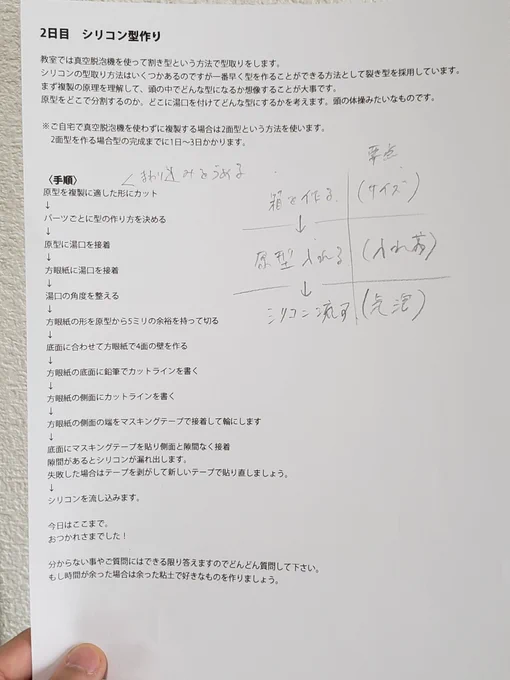 2日目 シリコン型作り
教室では真空脱泡機を使って割き型という方法で型取りをします。
シリコンの型取り方法はいくつかあるのですが一番早く型を作ることができる方法として裂き型を採用しています。
まず複製の原理を理解して、頭の中でどんな型になるか想像することが大事です。
原型をどこで分割するのか、どこに湯口を付けてどんな型にするかを考えます。頭の体操みたいなものです。
※ご自宅で真空脱泡機を使わずに複製する場合は2面型という方法を使います。
2面型を作る場合型の完成までに1日〜3日かかります。
〈手順〉
原型を複製に適した形にカット
↓
パーツごとに型の作り方を決める
↓
原型に湯口を接着
↓
方眼紙に湯口を接着
↓
湯口の角度を整える
↓
方眼紙の形を原型から5ミリの余裕を持って切る
↓
底面に合わせて方眼紙で4面の壁を作る
↓
方眼紙の底面に鉛筆でカットラインを書く
↓
方眼紙の側面にカットラインを書く
↓
方眼紙の側面の端をマスキングテープで接着して輪にします
↓
底面にマスキングテープを貼り側面と隙間なく接着
隙間があるとシリコンが漏れ出します。
失敗した場合はテープを剥がして新しいテープで貼り直しましょう。
↓
シリコンを流し込みます。
今日はここまで。
おつかれさまでした！
分からない事やご質問にはできる限り答えますのでどんどん質問して下さい。
もし時間が余った場合は余った粘土で好きなものを作りましょう。
込みをうめる
要点
箱を作る (サイズ)
↓
原型入れる
↓
シリコン流す (気泡)